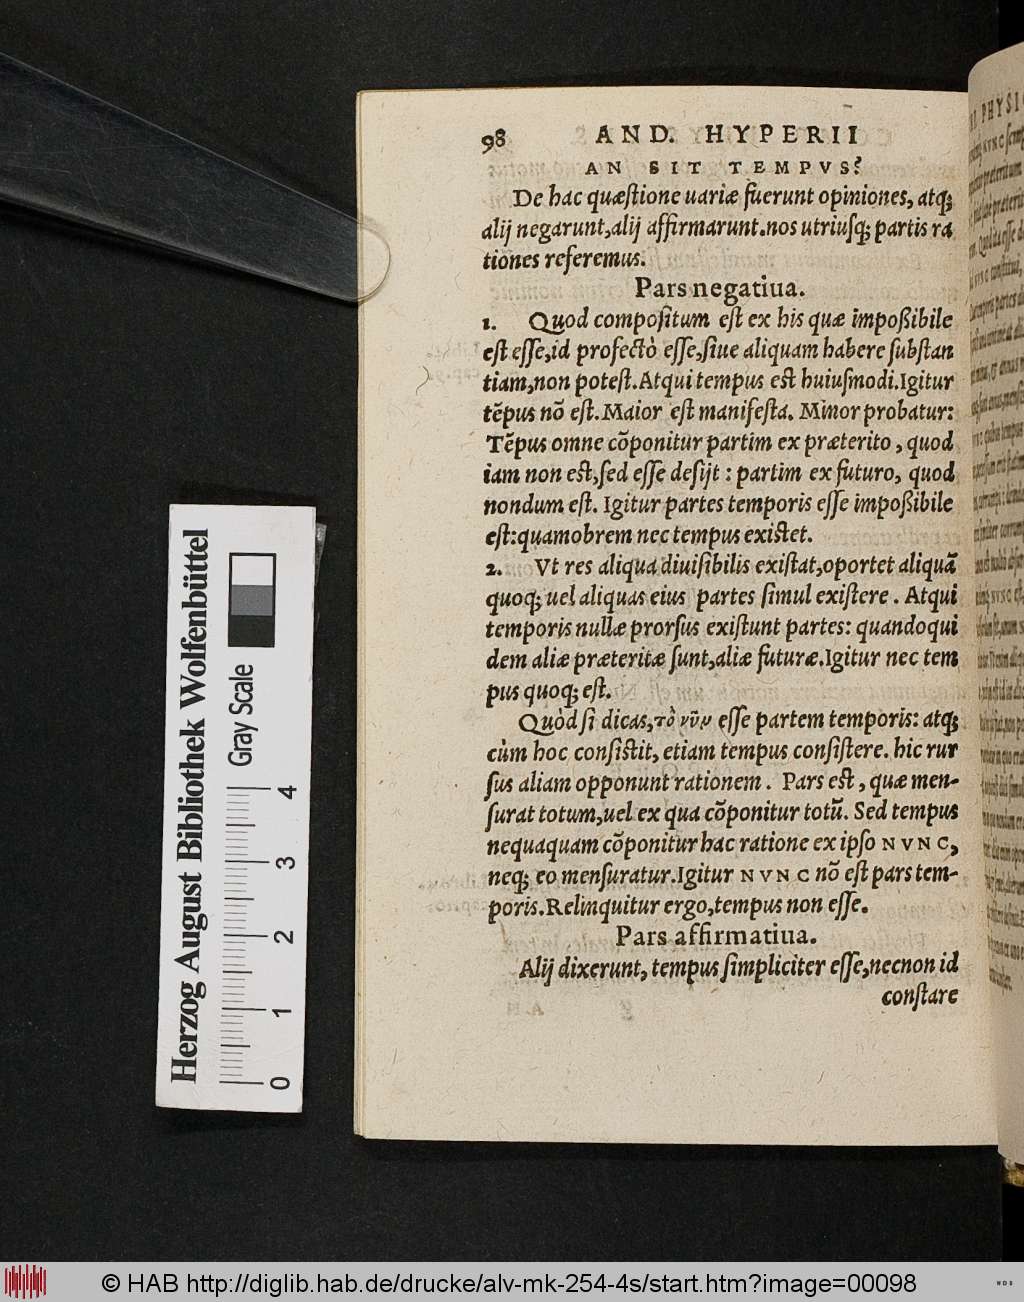 98 AND. HYPERII
AN SIT TEMPVS?
De hac quæstione uariæ fuerunt opiniones, atq;
alij negarunt, alij affirmarunt. nos utriusq; partis ra
tiones referemus.
Pars negatiua.
1. Quod compositum est ex his quæ impoßibile
est esse, id profectò esse, siue aliquam habere substan
tiam, non potest. Atqui tempus est huiusmodi. Igitur
tẽpus nõ est. Maior est manifesta. Minor probatur:
Tẽpus omne cõponitur partim ex præterito, quod
iam non est, sed esse desijt: partim ex futuro, quod
nondum est. Igitur partes temporis esse impoßibile
est: quamobrem nec tempus existet.
2. Vt res aliqua diuisibilis existat, oportet aliquã
quoq; uel aliquas eius partes simul existere. Atqui
temporis nullæ prorsus existunt partes: quandoqui
dem aliæ præteritæ sunt, aliæ futuræ. Igitur nec tem
pus quoq; est.
Quòd si dicas, τὸ νῦν esse partem temporis: atq;
cùm hoc consistit, etiam tempus consistere. hic rur
sus aliam opponunt rationem. Pars est, quæ men-
surat totum, uel ex qua cõponitur totũ. Sed tempus
nequaquam cõponitur hac ratione ex ipso NVNC,
neq; eo mensuratur. Igitur NVNC nõ est pars tem-
poris. Relinquitur ergo, tempus non esse.
Pars affirmatiua.
Alij dixerunt, tempus simpliciter esse, necnon id
constare
Herzog August Bibliothek Wolfenbüttel
Gray Scale
0 1 2 3 4
© HAB http://diglib.hab.de/drucke/alv-mk-254-4s/start.htm?image=00098